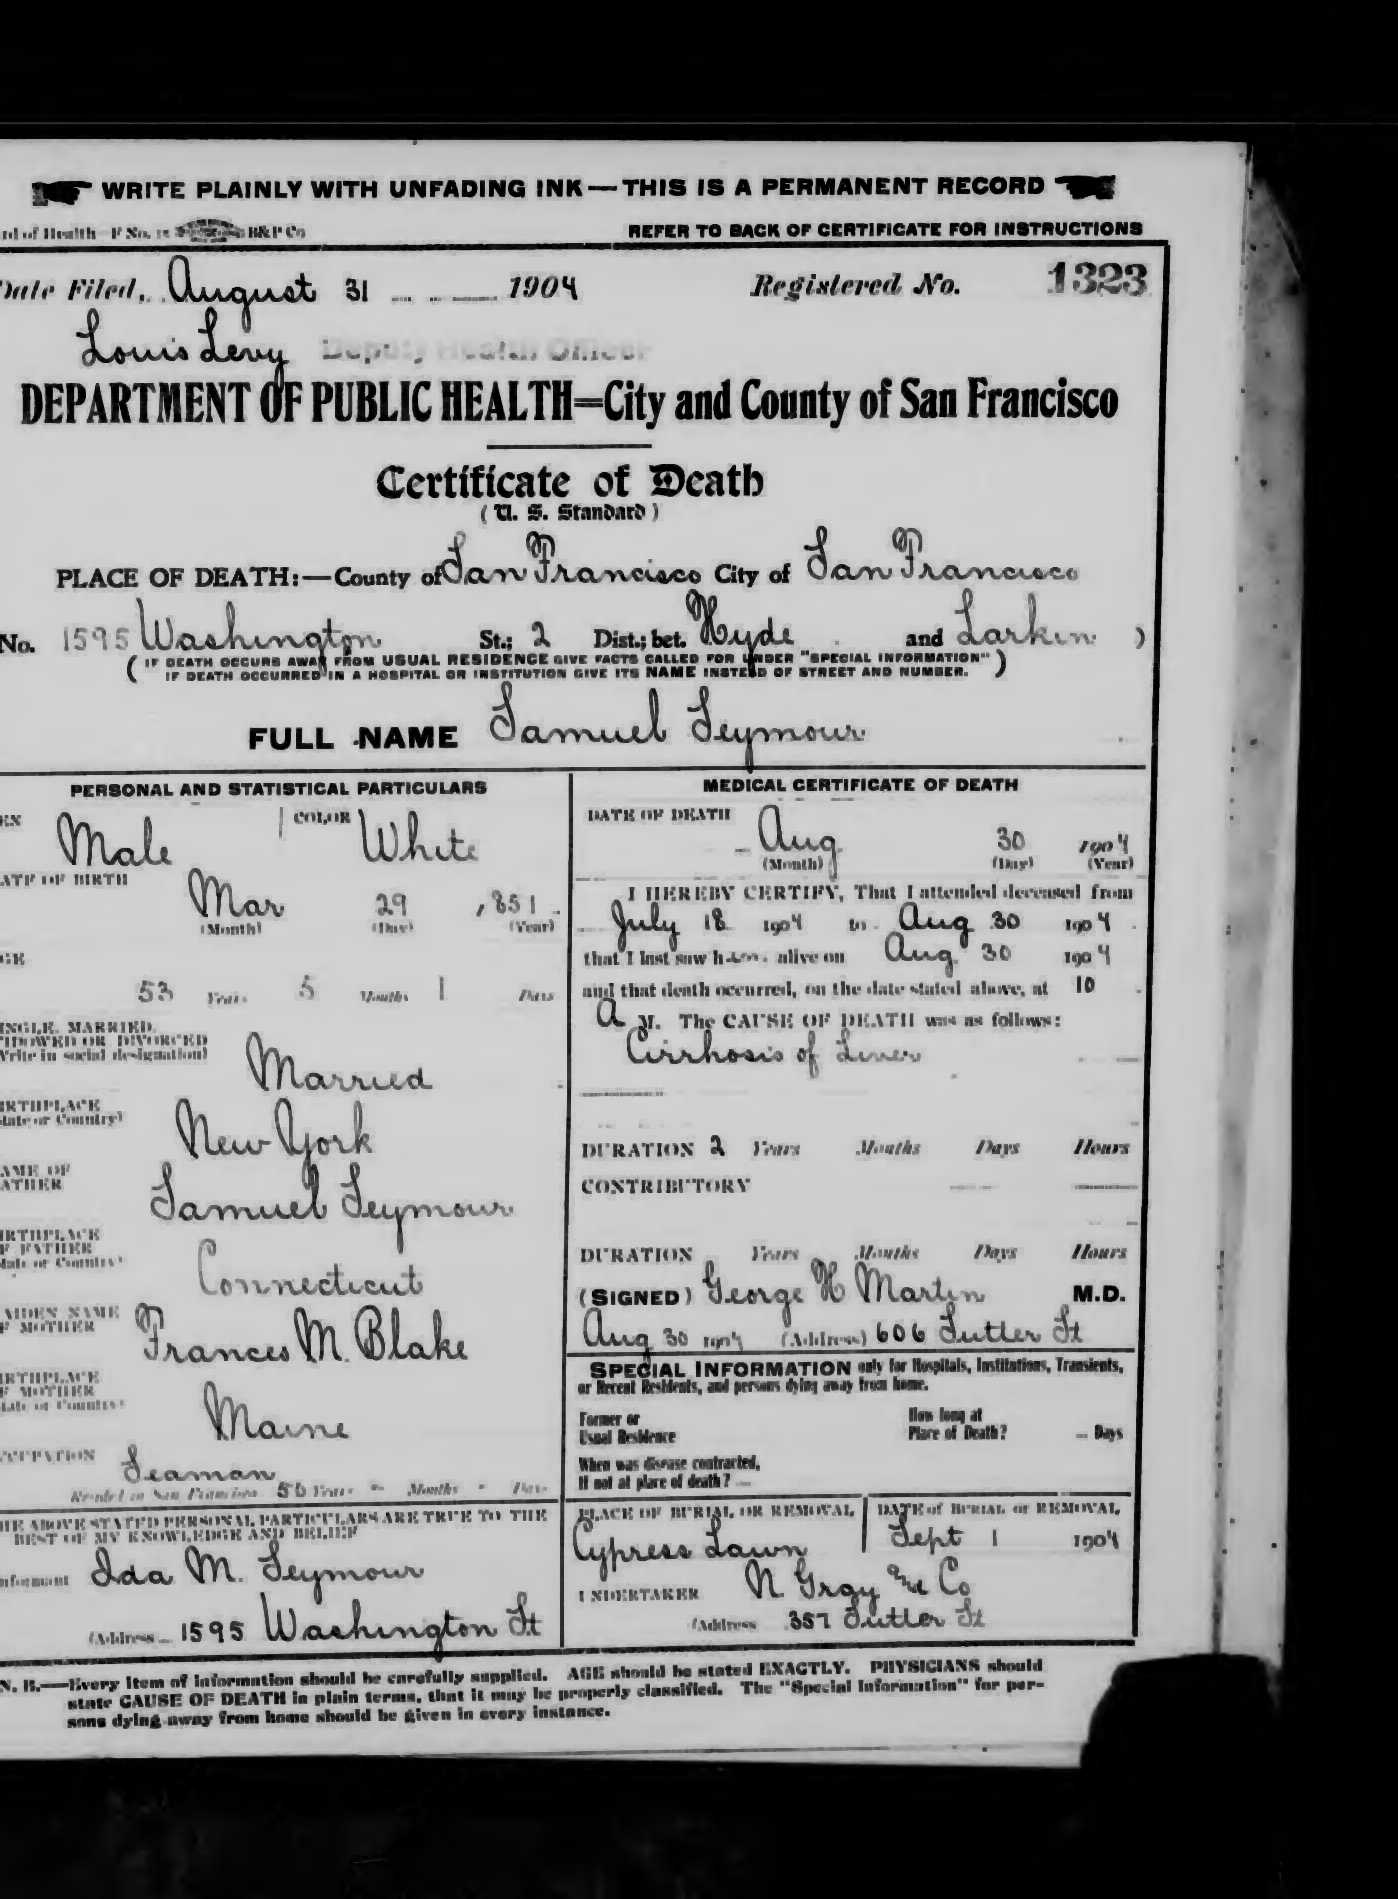 WRITE PLAINLY WITH UNFADING INK — THIS IS A PERMANENT RECORD
rd of Health—F No. 15 B&P Co REFER TO BACK OF CERTIFICATE FOR INSTRUCTIONS
Date Filed, August 31 1904 Registered No. 1323
Louis Levy Deputy Health Officer
DEPARTMENT OF PUBLIC HEALTH=City and County of San Francisco
Certificate of Death
( U. S. Standard )
PLACE OF DEATH:—County of San Francisco City of San Francisco
No. 1595 Washington St.; 2 Dist.; bet. Hyde and Larkin )
( IF DEATH OCCURS AWAY FROM USUAL RESIDENCE GIVE FACTS CALLED FOR UNDER "SPECIAL INFORMATION" )
( IF DEATH OCCURRED IN A HOSPITAL OR INSTITUTION GIVE ITS NAME INSTEAD OF STREET AND NUMBER. )
FULL NAME Samuel Seymour
PERSONAL AND STATISTICAL PARTICULARS
EX Male COLOR White
ATE OF BIRTH
Mar 29 , 851
(Month) (Day) (Year)
GE
53 Years 5 Months 1 Days
INGLE, MARRIED,
IDOWED OR DIVORCED
Write in social designation)
Married
IRTHPLACE
State or Country)
New York
AME OF
ATHER
Samuel Seymour
IRTHPLACE
F FATHER
State or Country)
Connecticut
AIDEN NAME
F MOTHER
Frances M. Blake
IRTHPLACE
F MOTHER
State or Country)
Maine
CCUPATION
Seaman
Resided in San Francisco 50 Years - Months - Days
HE ABOVE STATED PERSONAL PARTICULARS ARE TRUE TO THE
BEST OF MY KNOWLEDGE AND BELIEF
nformant Ida M. Seymour
(Address 1595 Washington St
MEDICAL CERTIFICATE OF DEATH
DATE OF DEATH
Aug 30 1904
(Month) (Day) (Year)
I HEREBY CERTIFY, That I attended deceased from
July 18 1904 to Aug 30 1904
that I last saw him alive on Aug 30 1904
and that death occurred, on the date stated above, at 10
A M. The CAUSE OF DEATH was as follows:
Cirrhosis of Liver
DURATION 2 Years Months Days Hours
CONTRIBUTORY
DURATION Years Months Days Hours
(SIGNED) George H Martin M.D.
Aug 30 1904 (Address) 606 Sutter St
SPECIAL INFORMATION only for Hospitals, Institutions, Transients,
or Recent Residents, and persons dying away from home.
Former or
Usual Residence
How long at
Place of Death? Days
When was disease contracted,
If not at place of death?
PLACE OF BURIAL OR REMOVAL
Cypress Lawn
DATE of BURIAL or REMOVAL
Sept 1 1904
UNDERTAKER N Gray and Co
(Address 357 Sutter St
N. B.—Every item of information should be carefully supplied. AGE should be stated EXACTLY. PHYSICIANS should
state CAUSE OF DEATH in plain terms, that it may be properly classified. The "Special Information" for per-
sons dying away from home should be given in every instance.